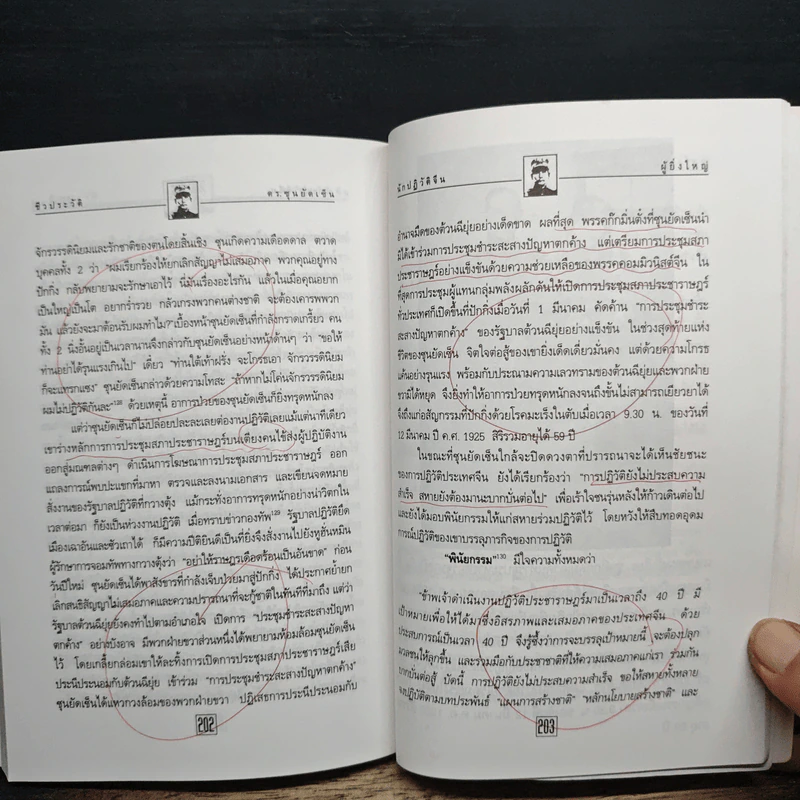 ชีวประวัติ
ดร.ซุนยัดเซ็น
จักรวรรดินิยมและรักชาติของตนโดยสิ้นเชิง ซุนเกิดความเดือดดาล ตวาด
บุคคลทั้ง 2 ว่า "ผมเรียกร้องให้ยกเลิกสัญญาไม่เสมอภาค พวกคุณอยู่ทาง
ปักกิ่ง กลับพยายามจะรักษาเอาไว้ นี่มันเรื่องอะไรกัน แล้วในเมื่อคุณอยาก
เป็นใหญ่เป็นโต อยากร่ำรวย กลัวเกรงพวกคนต่างชาติ จะต้องเคารพพวก
มัน แล้วยังจะมาต้อนรับผมทำไม?" เบื้องหน้าซุนยัดเซ็นที่กำลังกราดเกรี้ยว คน
ทั้ง 2 นิ่งอั้นอยู่เป็นเวลานานจึงกล่าวกับซุนยัดเซ็นอย่างหน้าด้านๆ ว่า "ขอให้
ท่านอย่าได้รุนแรงเกินไป" เดี๋ยว "ท่านใต้เท้าฝรั่ง จะโกรธเอา จักรวรรดินิยม
ก็จะแทรกแซง" ซุนยัดเซ็นกล่าวด้วยความโทสะ "ถ้าหากไม่โค่นจักรวรรดินิยม
ผมไม่ปฏิวัติกันละ"128 ด้วยเหตุนี้ อาการป่วยของซุนยัดเซ็นก็ยิ่งทรุดหนักลง
แต่ว่าซุนยัดเซ็นก็ไม่ปล่อยปละละเลยต่องานปฏิวัติเลยแม้แต่นาทีเดียว
เขาร่างหลักการการประชุมสภาประชาราษฎร์บนเตียงคนไข้ส่งผู้ปฏิบัติงาน
ออกสู่มณฑลต่างๆ ดำเนินการโฆษณาการประชุมสภาประชาราษฎร์ ออก
แถลงการณ์พบปะแขกที่มาหา ตรวจและลงนามเอกสาร และเขียนจดหมาย
สั่งงานของรัฐบาลปฏิวัติที่กวางตุ้ง แม้กระทั่งอาการทรุดหนักอย่างน่าวิตกใน
เวลาต่อมา ก็ยังเป็นห่วงงานปฏิวัติ เมื่อทราบข่าวกองทัพ129 รัฐบาลปฏิวัติยึด
เมืองเฉาอันและซัวเถาได้ ก็มีความปีติยินดีเป็นที่ยิ่งจึงสั่งงานไปยังหูฮั่นหมิน
ผู้รักษาการจอมทัพทางกวางตุ้งว่า "อย่าให้ราษฎรเดือดร้อนเป็นอันขาด" ก่อน
วันปีใหม่ ซุนยัดเซ็นได้พาสังขารที่กำลังเจ็บป่วยมาสู่ปักกิ่ง ได้ประกาศย้ำยก
เลิกสนธิสัญญาไม่เสมอภาคและความปรารถนาที่จะกู้ชาติในทันทีที่มาถึง แต่ว่า
รัฐบาลต้วนฉียุ่ยยังคงทำไปตามอำเภอใจ เปิดการ "ประชุมชำระสะสางปัญหา
ตกค้าง" อย่างบังอาจ มีพวกฝ่ายขวาส่วนหนึ่งได้พยายามห้อมล้อมซุนยัดเซ็น
ไว้ โดยเกลี้ยกล่อมเขาให้ละทิ้งการเปิดการประชุมสภาประชาราษฎร์เสีย
ประนีประนอมกับต้วนฉียุ่ย เข้าร่วม "การประชุมชำระสะสางปัญหาตกค้าง"
ซุนยัดเซ็นได้แหวกวงล้อมของพวกฝ่ายขวา ปฏิเสธการประนีประนอมกับ
202
นักปฏิวัติจีน
ผู้ยิ่งใหญ่
อำนาจมืดของต้วนฉียุ่ยอย่างเด็ดขาด ผลที่สุด พรรคก๊กมิ่นตั๋งที่ซุนยัดเซ็นนำ
มิได้เข้าร่วมการประชุมชำระสะสางปัญหาตกค้าง แต่เตรียมการประชุมสภา
ประชาราษฎร์อย่างแข็งขันด้วยความช่วยเหลือของพรรคคอมมิวนิสต์จีน ใน
ที่สุดการประชุมผู้แทนกลุ่มพลังผลักดันให้เปิดการประชุมสภาประชาราษฎร์
ทั่วประเทศก็เปิดขึ้นที่ปักกิ่งเมื่อวันที่ 1 มีนาคม คัดค้าน "การประชุมชำระ
สะสางปัญหาตกค้าง" ของรัฐบาลต้วนฉียุ่ยอย่างแข็งขัน ในช่วงสุดท้ายแห่ง
ชีวิตของซุนยัดเซ็น จิตใจต่อสู้ของเขายิ่งเด็ดเดี่ยวมั่นคง แต่ด้วยความโกรธ
แค้นอย่างรุนแรง พร้อมกับประณามความเลวทรามของต้วนฉียุ่ยและพวกฝ่าย
ขวามิได้หยุด จึงยิ่งทำให้อาการป่วยทรุดหนักลงจนถึงขั้นไม่สามารถเยียวยาได้
จึงถึงแก่อสัญกรรมที่ปักกิ่งด้วยโรคมะเร็งในตับเมื่อเวลา 9.30 น. ของวันที่
12 มีนาคม ปี ค.ศ. 1925 สิริรวมอายุได้ 59 ปี
ในขณะที่ซุนยัดเซ็นใกล้จะปิดดวงตาที่ปรารถนาจะได้เห็นชัยชนะ
ของการปฏิวัติประเทศจีน ยังได้เรียกร้องว่า "การปฏิวัติยังไม่ประสบความ
สำเร็จ สหายยังต้องมานะบากบั่นต่อไป" เพื่อเร้าใจชนรุ่นหลังให้ก้าวเดินต่อไป
และยังได้มอบพินัยกรรมให้แก่สหายร่วมปฏิวัติไว้ โดยหวังให้สืบทอดอุดม
การณ์ปฏิวัติของเขาบรรลุภารกิจของการปฏิวัติ
"พินัยกรรม"130 มีใจความทั้งหมดว่า
"ข้าพเจ้าดำเนินงานปฏิวัติประชาราษฎร์มาเป็นเวลาถึง 40 ปี มี
เป้าหมายเพื่อให้ได้มาซึ่งอิสรภาพและเสมอภาคของประเทศจีน ด้วย
ประสบการณ์เป็นเวลา 40 ปี จึงรู้ซึ้งว่าการจะบรรลุเป้าหมายนี้ จะต้องปลุก
มวลชนให้ลุกขึ้น และร่วมมือกับประชาชาติที่ให้ความเสมอภาคแก่เรา ร่วมกัน
บากบั่นต่อสู้ บัดนี้ การปฏิวัติยังไม่ประสบความสำเร็จ ขอให้สหายทั้งหลาย
จงปฏิบัติตามบทประพันธ์ "แผนการสร้างชาติ" "หลักนโยบายสร้างชาติ" และ
203